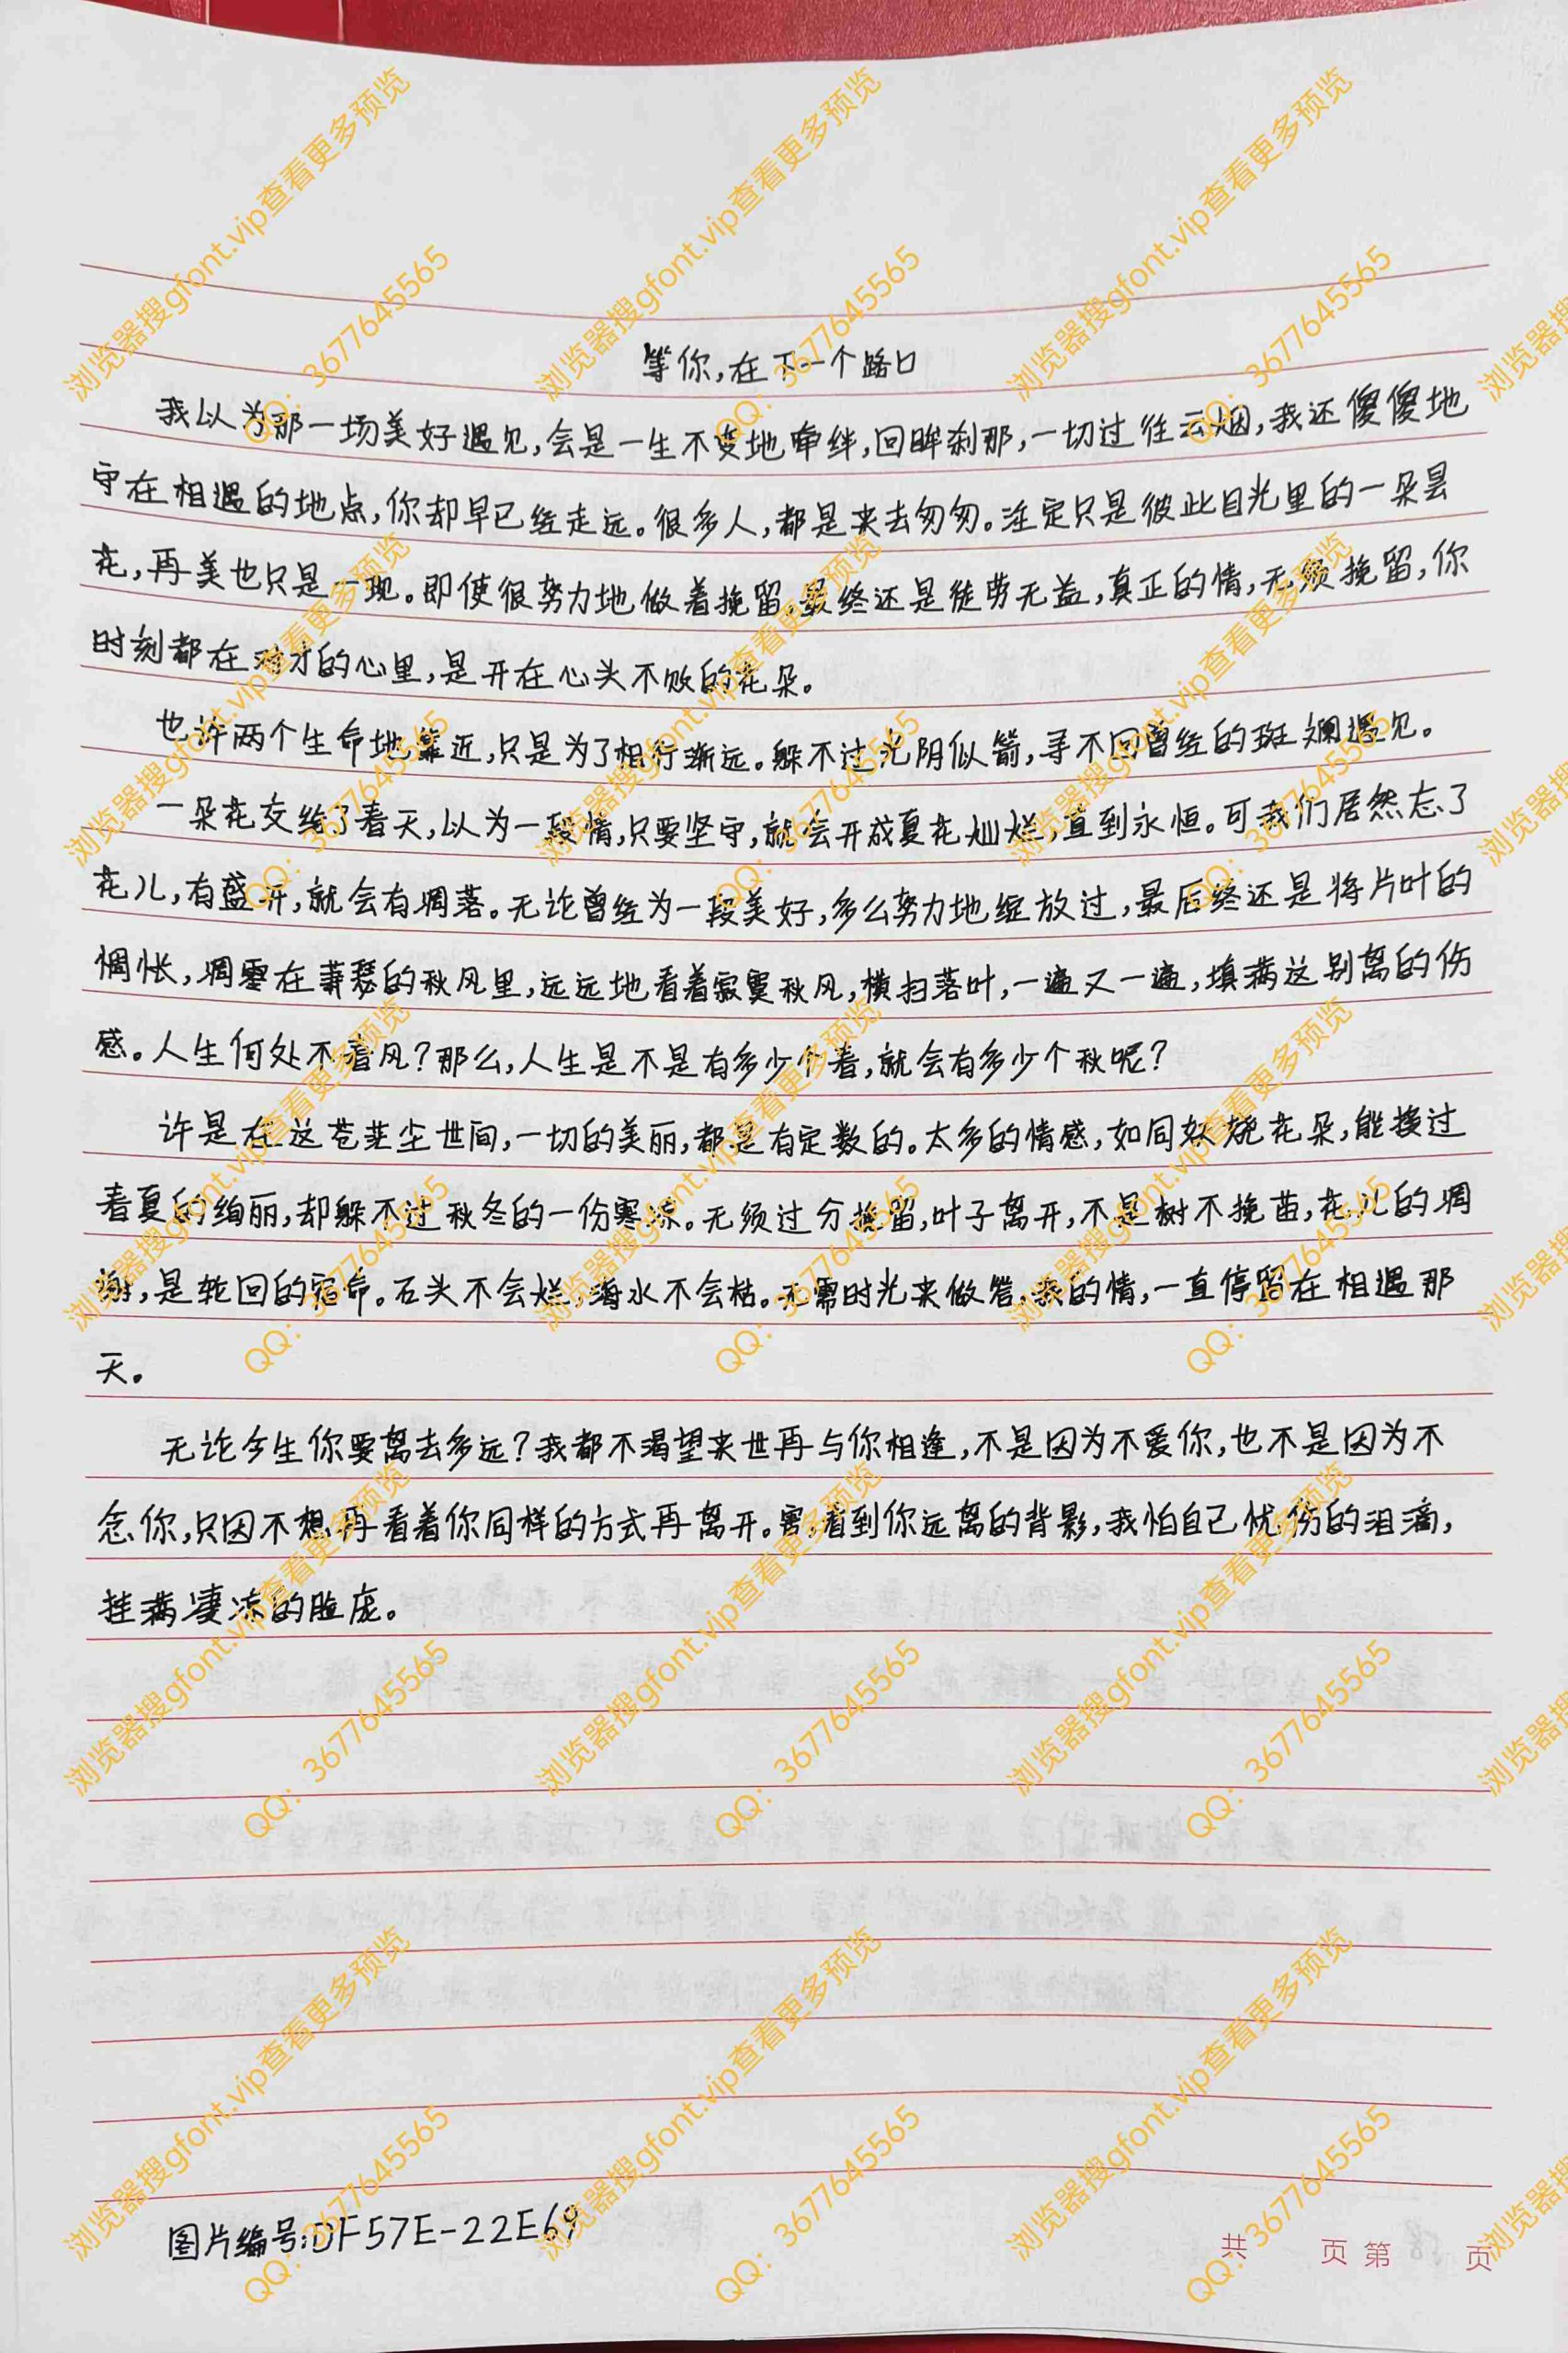 等你,在下一个路口
我以为那一场美好遇见,会是一生不变地牵绊,回眸刹那,一切过往云烟,我还傻傻地
守在相遇的地点,你却早已经走远。很多人,都是来去匆匆。注定只是彼此目光里的一朵昙
花,再美也只是一现。即使很努力地做着挽留,最终还是徒劳无益,真正的情,无须挽留,你
时刻都在对方的心里,是开在心头不败的花朵。
也许两个生命地靠近,只是为了相行渐远。躲不过光阴似箭,寻不回曾经的斑斓遇见。
一朵花交给了春天,以为一段情,只要坚守,就会开成夏花灿烂,直到永恒。可我们居然忘了
花儿,有盛开,就会有凋落。无论曾经为一段美好,多么努力地绽放过,最后终还是将片叶的
惆怅,凋零在萧瑟的秋风里,远远地看着寂寞秋风,横扫落叶,一遍又一遍,填满这别离的伤
感。人生何处不春风?那么,人生是不是有多少个春,就会有多少个秋呢?
许是在这苍茫尘世间,一切的美丽,都是有定数的。太多的情感,如同妖娆花朵,能挨过
春夏的绚丽,却躲不过秋冬的一份寒凉。无须过分挽留,叶子离开,不是树不挽苗,花儿的凋
谢,是轮回的宿命。石头不会烂,海水不会枯。无需时光来做答,我的情,一直停留在相遇那
天。
无论今生你要离去多远?我都不渴望来世再与你相逢,不是因为不爱你,也不是因为不
念你,只因不想再看着你同样的方式再离开。害,看到你远离的背影,我怕自己忧伤的泪滴,
挂满凄凉的脸庞。
图片编号:DF57E-22E69
共 页 第 页
浏览器搜gfont.vip查看更多预览
QQ: 3677645565